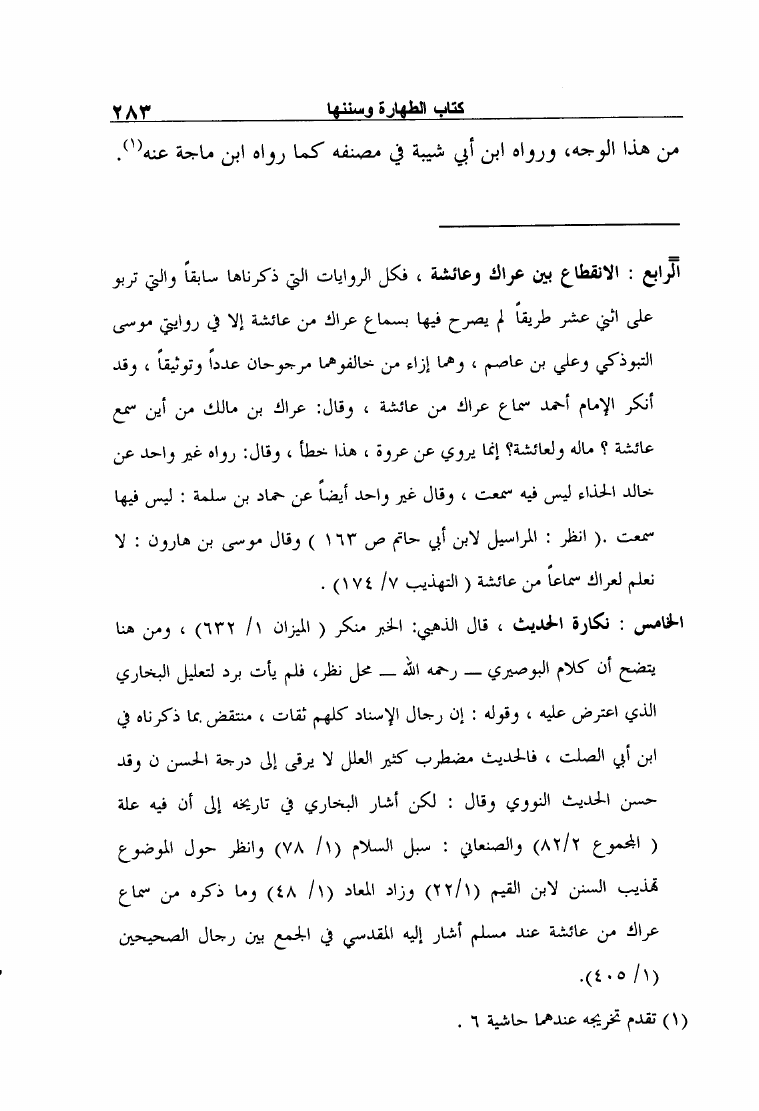 كتاب الطهارة وسننها ٢٨٣
من هذا الوجه، ورواه ابن أبي شيبة في مصنفه كما رواه ابن ماجة عنه(١).
= الرابع : الانقطاع بين عراك وعائشة ، فكل الروايات التي ذكرناها سابقاً والتي تربو
على اثني عشر طريقاً لم يصرح فيها بسماع عراك من عائشة إلا في روايتي موسى
التبوذكي وعلي بن عاصم ، وهما إزاء من خالفوهما مرجوحان عدداً وتوثيقاً ، وقد
أنكر الإمام أحمد سماع عراك من عائشة ، وقال: عراك بن مالك من أين سمع
عائشة ؟ ماله ولعائشة؟ إنما يروي عن عروة ، هذا خطأ ، وقال: رواه غير واحد عن
خالد الحذاء ليس فيه سمعت ، وقال غير واحد أيضاً عن حماد بن سلمة : ليس فيها
سمعت .( انظر : المراسيل لابن أبي حاتم ص ١٦٣ ) وقال موسى بن هارون : لا
نعلم لعراك سماعاً من عائشة ( التهذيب ٧/ ١٧٤) .
الخامس : نكارة الحديث ، قال الذهبي: الخبر منكر ( الميزان ١/ ٦٣٢) ، ومن هنا
يتضح أن كلام البوصيري – رحمه الله – محل نظر، فلم يأت برد لتعليل البخاري
الذي اعترض عليه ، وقوله : إن رجال الإسناد كلهم ثقات ، منتقض بما ذكرناه في
ابن أبي الصلت ، فالحديث مضطرب كثير العلل لا يرقى إلى درجة الحسن ن وقد
حسن الحديث النووي وقال : لكن أشار البخاري في تاريخه إلى أن فيه علة
( المجموع ٨٢/٢) والصنعاني : سبل السلام (١/ ٧٨) وانظر حول الموضوع
تهذيب السنن لابن القيم (٢٢/١) وزاد المعاد (١/ ٤٨) وما ذكره من سماع
عراك من عائشة عند مسلم أشار إليه المقدسي في الجمع بين رجال الصحيحين
(١/ ٤٠٥).
(١) تقدم تخريجه عندهما حاشية ٦ .